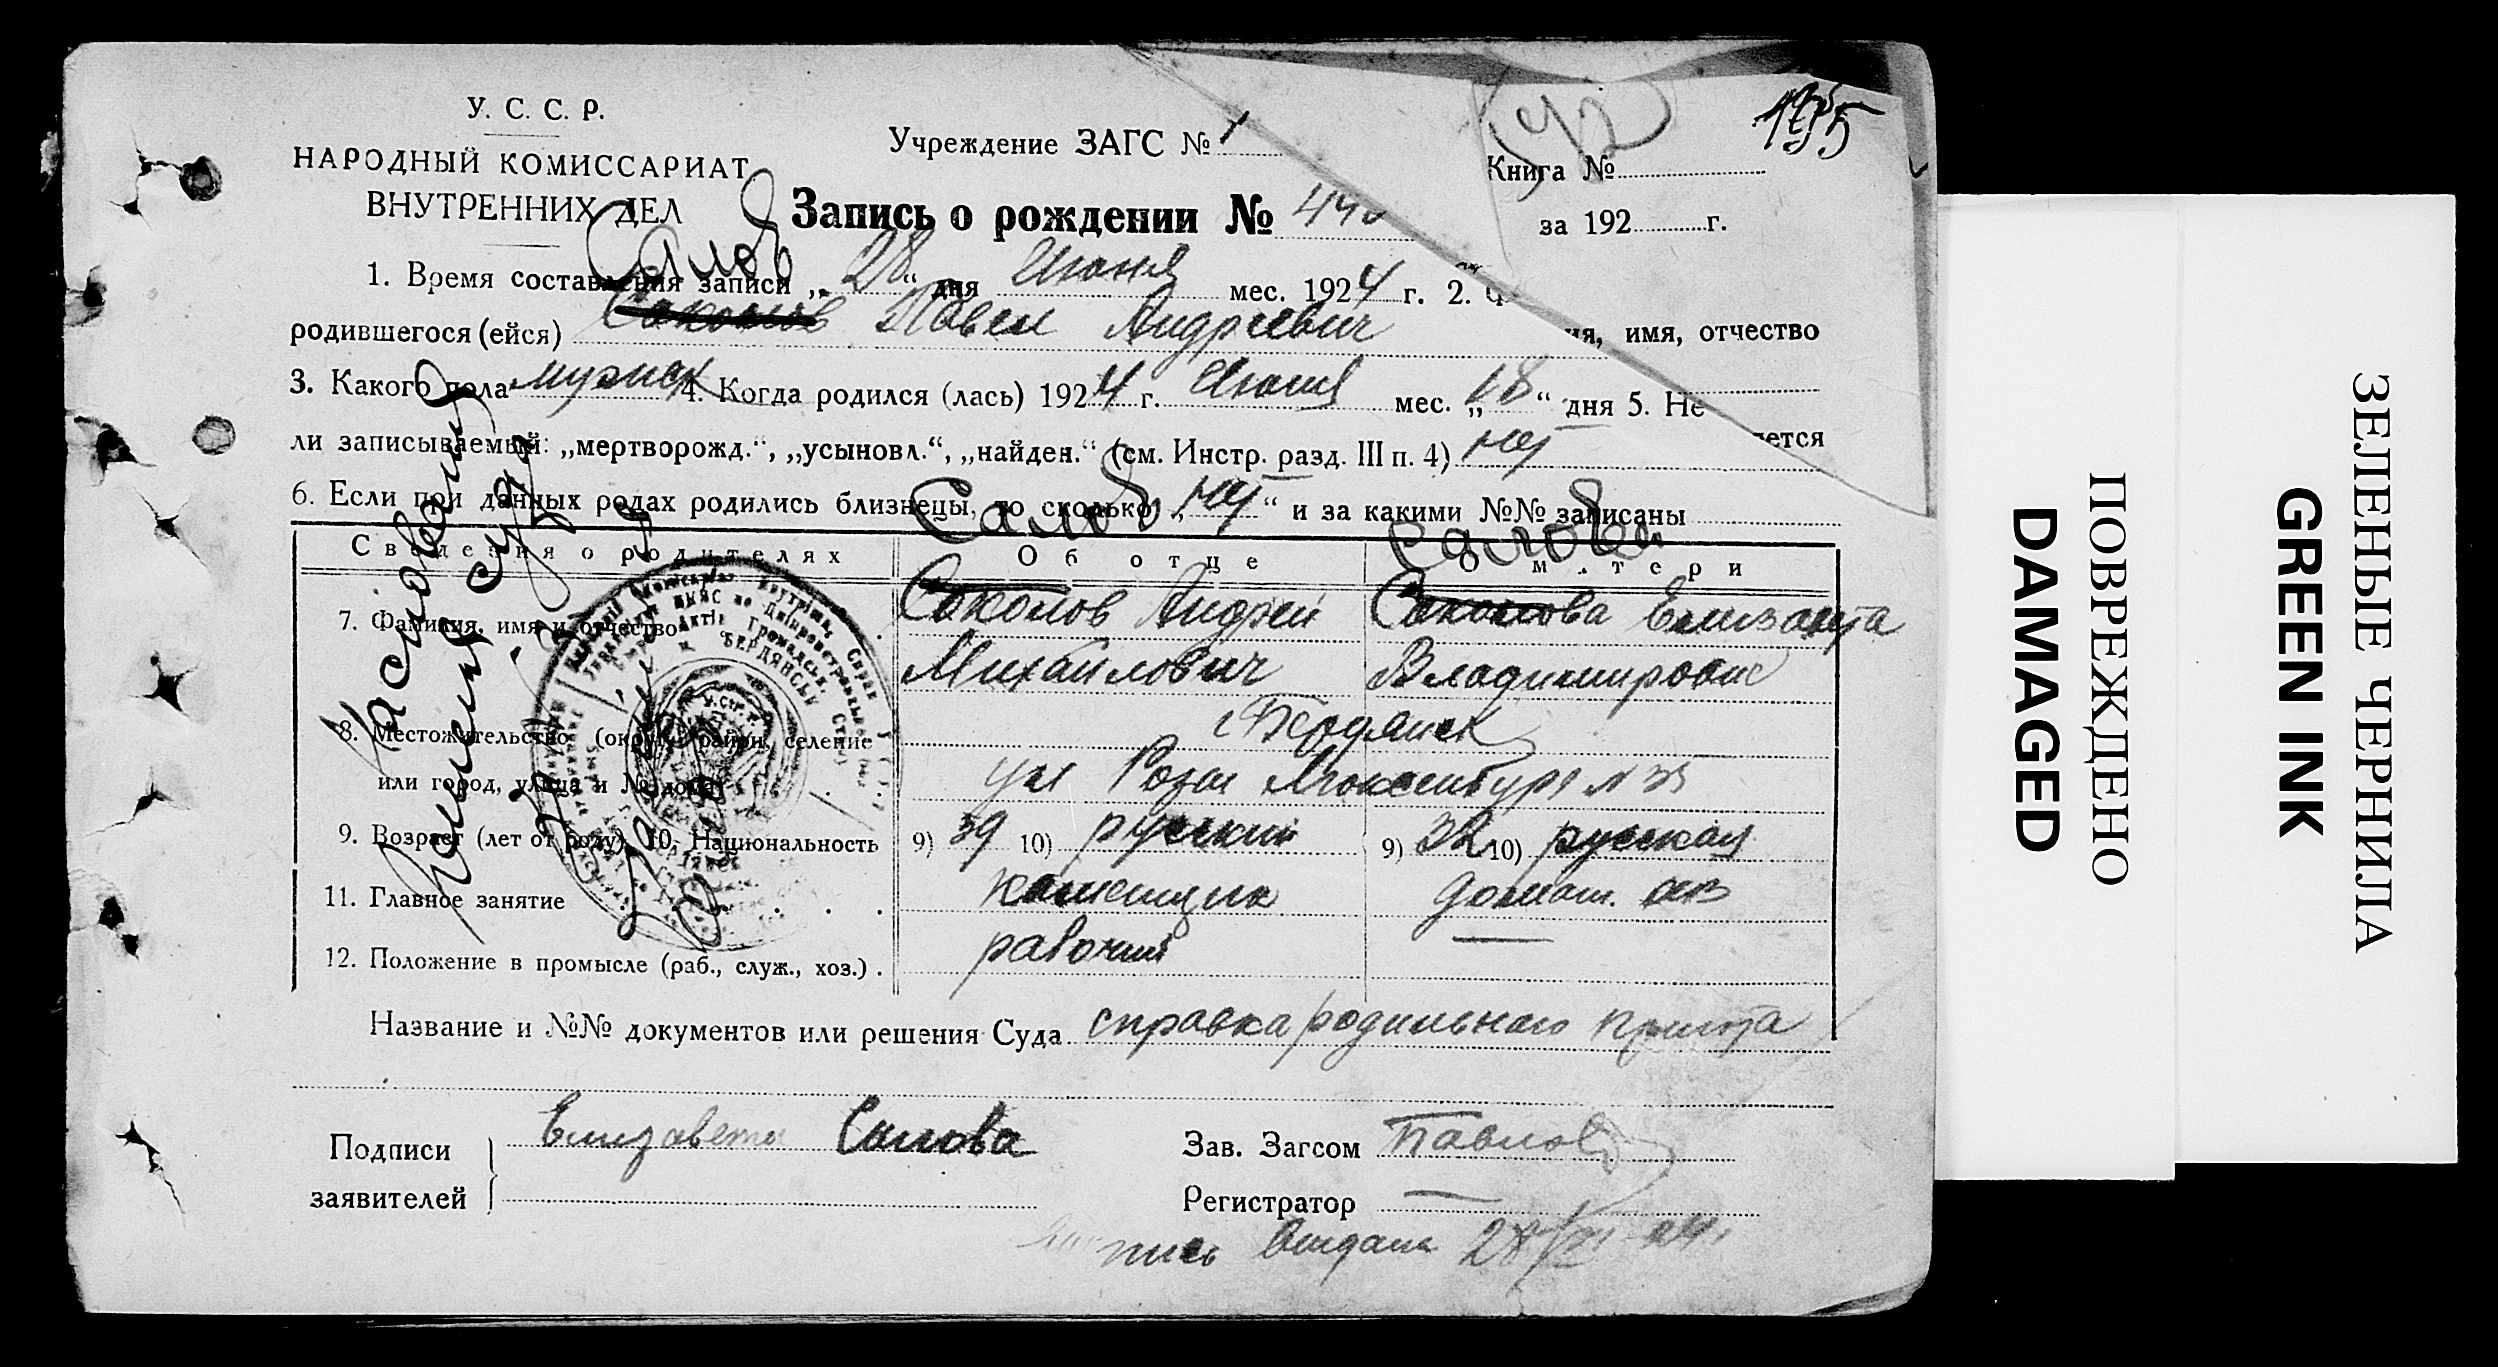 195
У. С. С. Р.
НАРОДНЫЙ КОМИССАРИАТ
ВНУТРЕННИХ ДЕЛ
Учреждение ЗАГС № 1
Книга №
Запись о рождении №
за 192 г.
Салов
1. Время составления записи „28“ дня Июня мес. 1924 г. 2.
родившегося (ейся) Соколов Павел Андреевич ия, имя, отчество
3. Какого пола мужск 4. Когда родился (лась) 1924 г. Июня мес. „18“ дня 5. Не
ли записываемый: „мертворожд.“, „усыновл.“, „найден.“ (см. Инстр. разд. III п. 4) нет ется
6. Если при данных родах родились близнецы, то сколько „нет“ и за какими №№ записаны
Салов Салова
Сведения о родителях Об отце О матери
7. Фамилия, имя и отчество Соколов Андрей Соколова Елизавета
Михайлович Владимировна
8. Местожительство (округ, район, селение г Бердянск
или город, улица и № дома) ул Розы Люксембург № 35
9. Возраст (лет от роду) 10. Национальность 9) 39 10) русский 9) 32 10) русская
11. Главное занятие каменщик домаш.
12. Положение в промысле (раб., служ., хоз.) рабочий
Название и №№ документов или решения Суда справка родильного приюта
Подписи
заявителей
Елизавета Салова
Зав. Загсом Павлов
Регистратор
выдана 28
На основании
решения суда
БЕРДЯНСЬК
У.С.Р.Р.
ПОВРЕЖДЕНО
DAMAGED
ЗЕЛЕНЫЕ ЧЕРНИЛА
GREEN INK